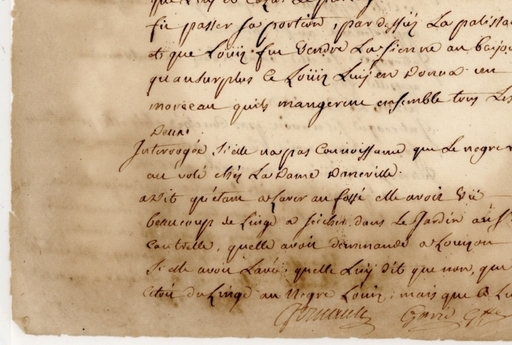 fit passer sa portion, par dessus La palissa
et que Loüis fut vendre La sienne au
qu'au surplus Ce Loüis Luy en Donna un
morceau quils mangerent ensemble tous Les
Deux.
Interrogée, Si elle na pas Connoissance que Le negre
au volé chés La Dame
a dit qu'étant a Laver au fossé elle avoit Vû
beaucoup de Linge a seicher dans Le Jardin au Sr.
quelle avoit demmandé a Louison
Si elle avoit Lavé; quelle Luy dit que non, que
Cetoit du Linge au Negre Loüis; mais que